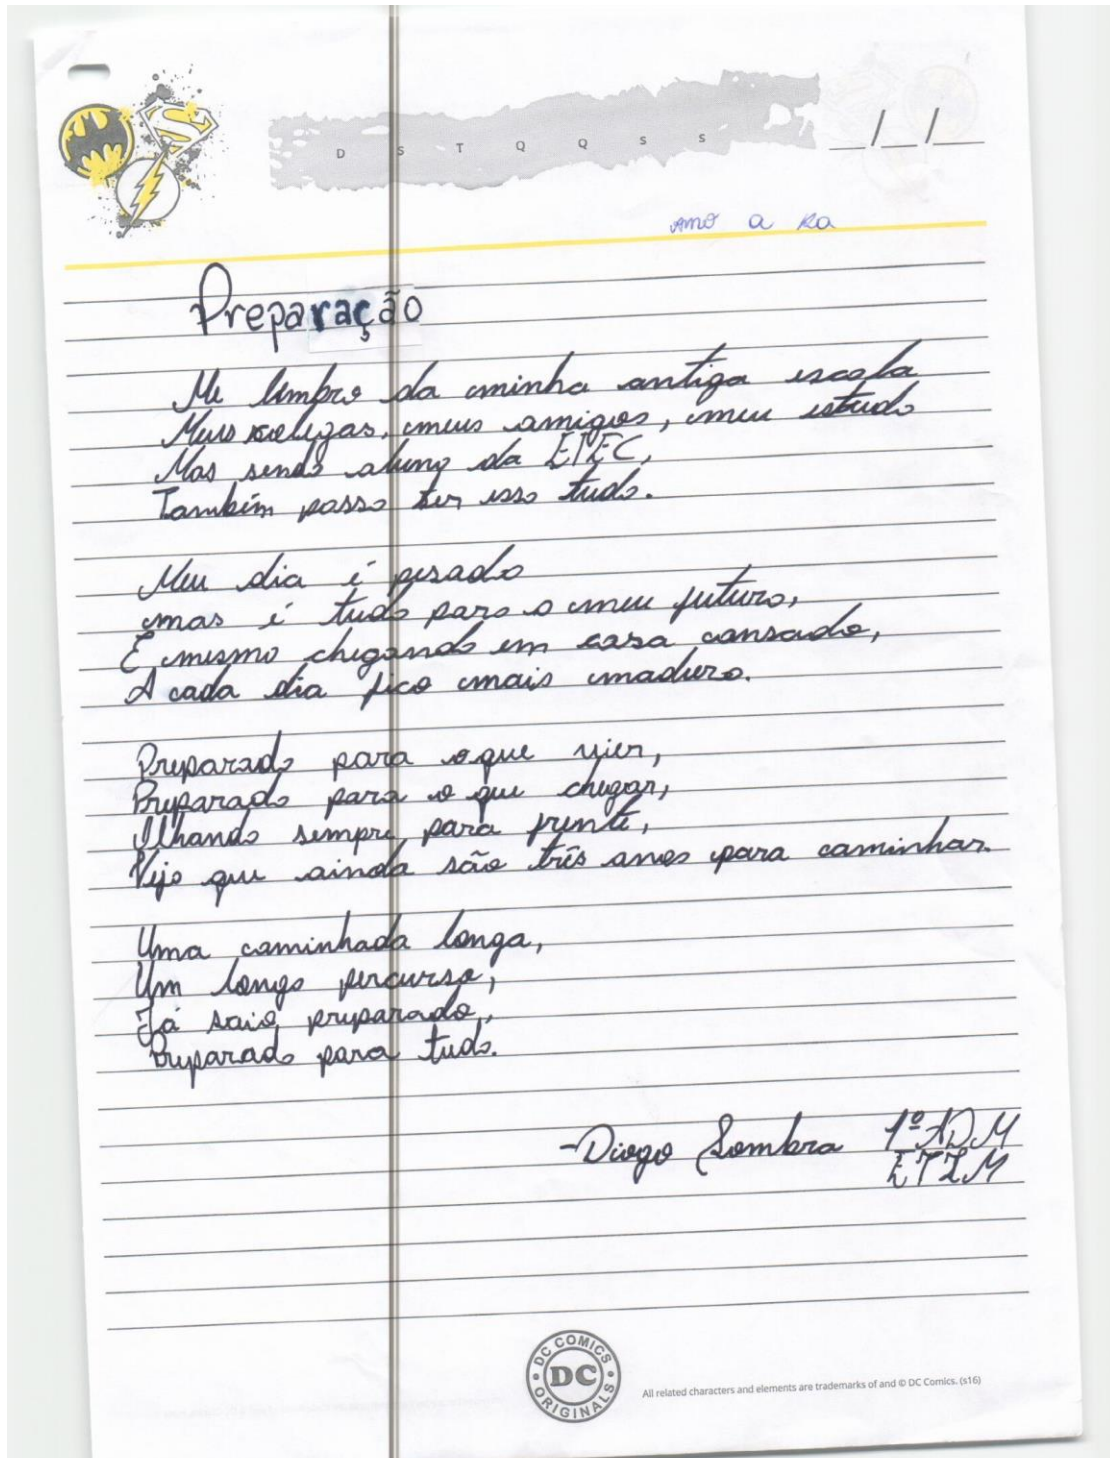 D S T Q Q S S
__/__/__
amo a Ra
Preparação
Me lembro da minha antiga escola
Meus colegas, meus amigos, meu estudo
Mas sendo aluno da ETEC,
Também posso ter isso tudo.
Meu dia é pesado
mas é tudo para o meu futuro,
E mesmo chegando em casa cansado,
A cada dia fico mais maduro.
Preparado para o que vier,
Preparado para o que chegar,
Olhando sempre para frente,
Vejo que ainda são três anos para caminhar.
Uma caminhada longa,
Um longo percurso,
Já saio preparado,
Preparado para tudo.
-Diogo Sombra 1º ADM
ETIM
DC COMICS
DC
ORIGINALS
All related characters and elements are trademarks of and © DC Comics. (s16)